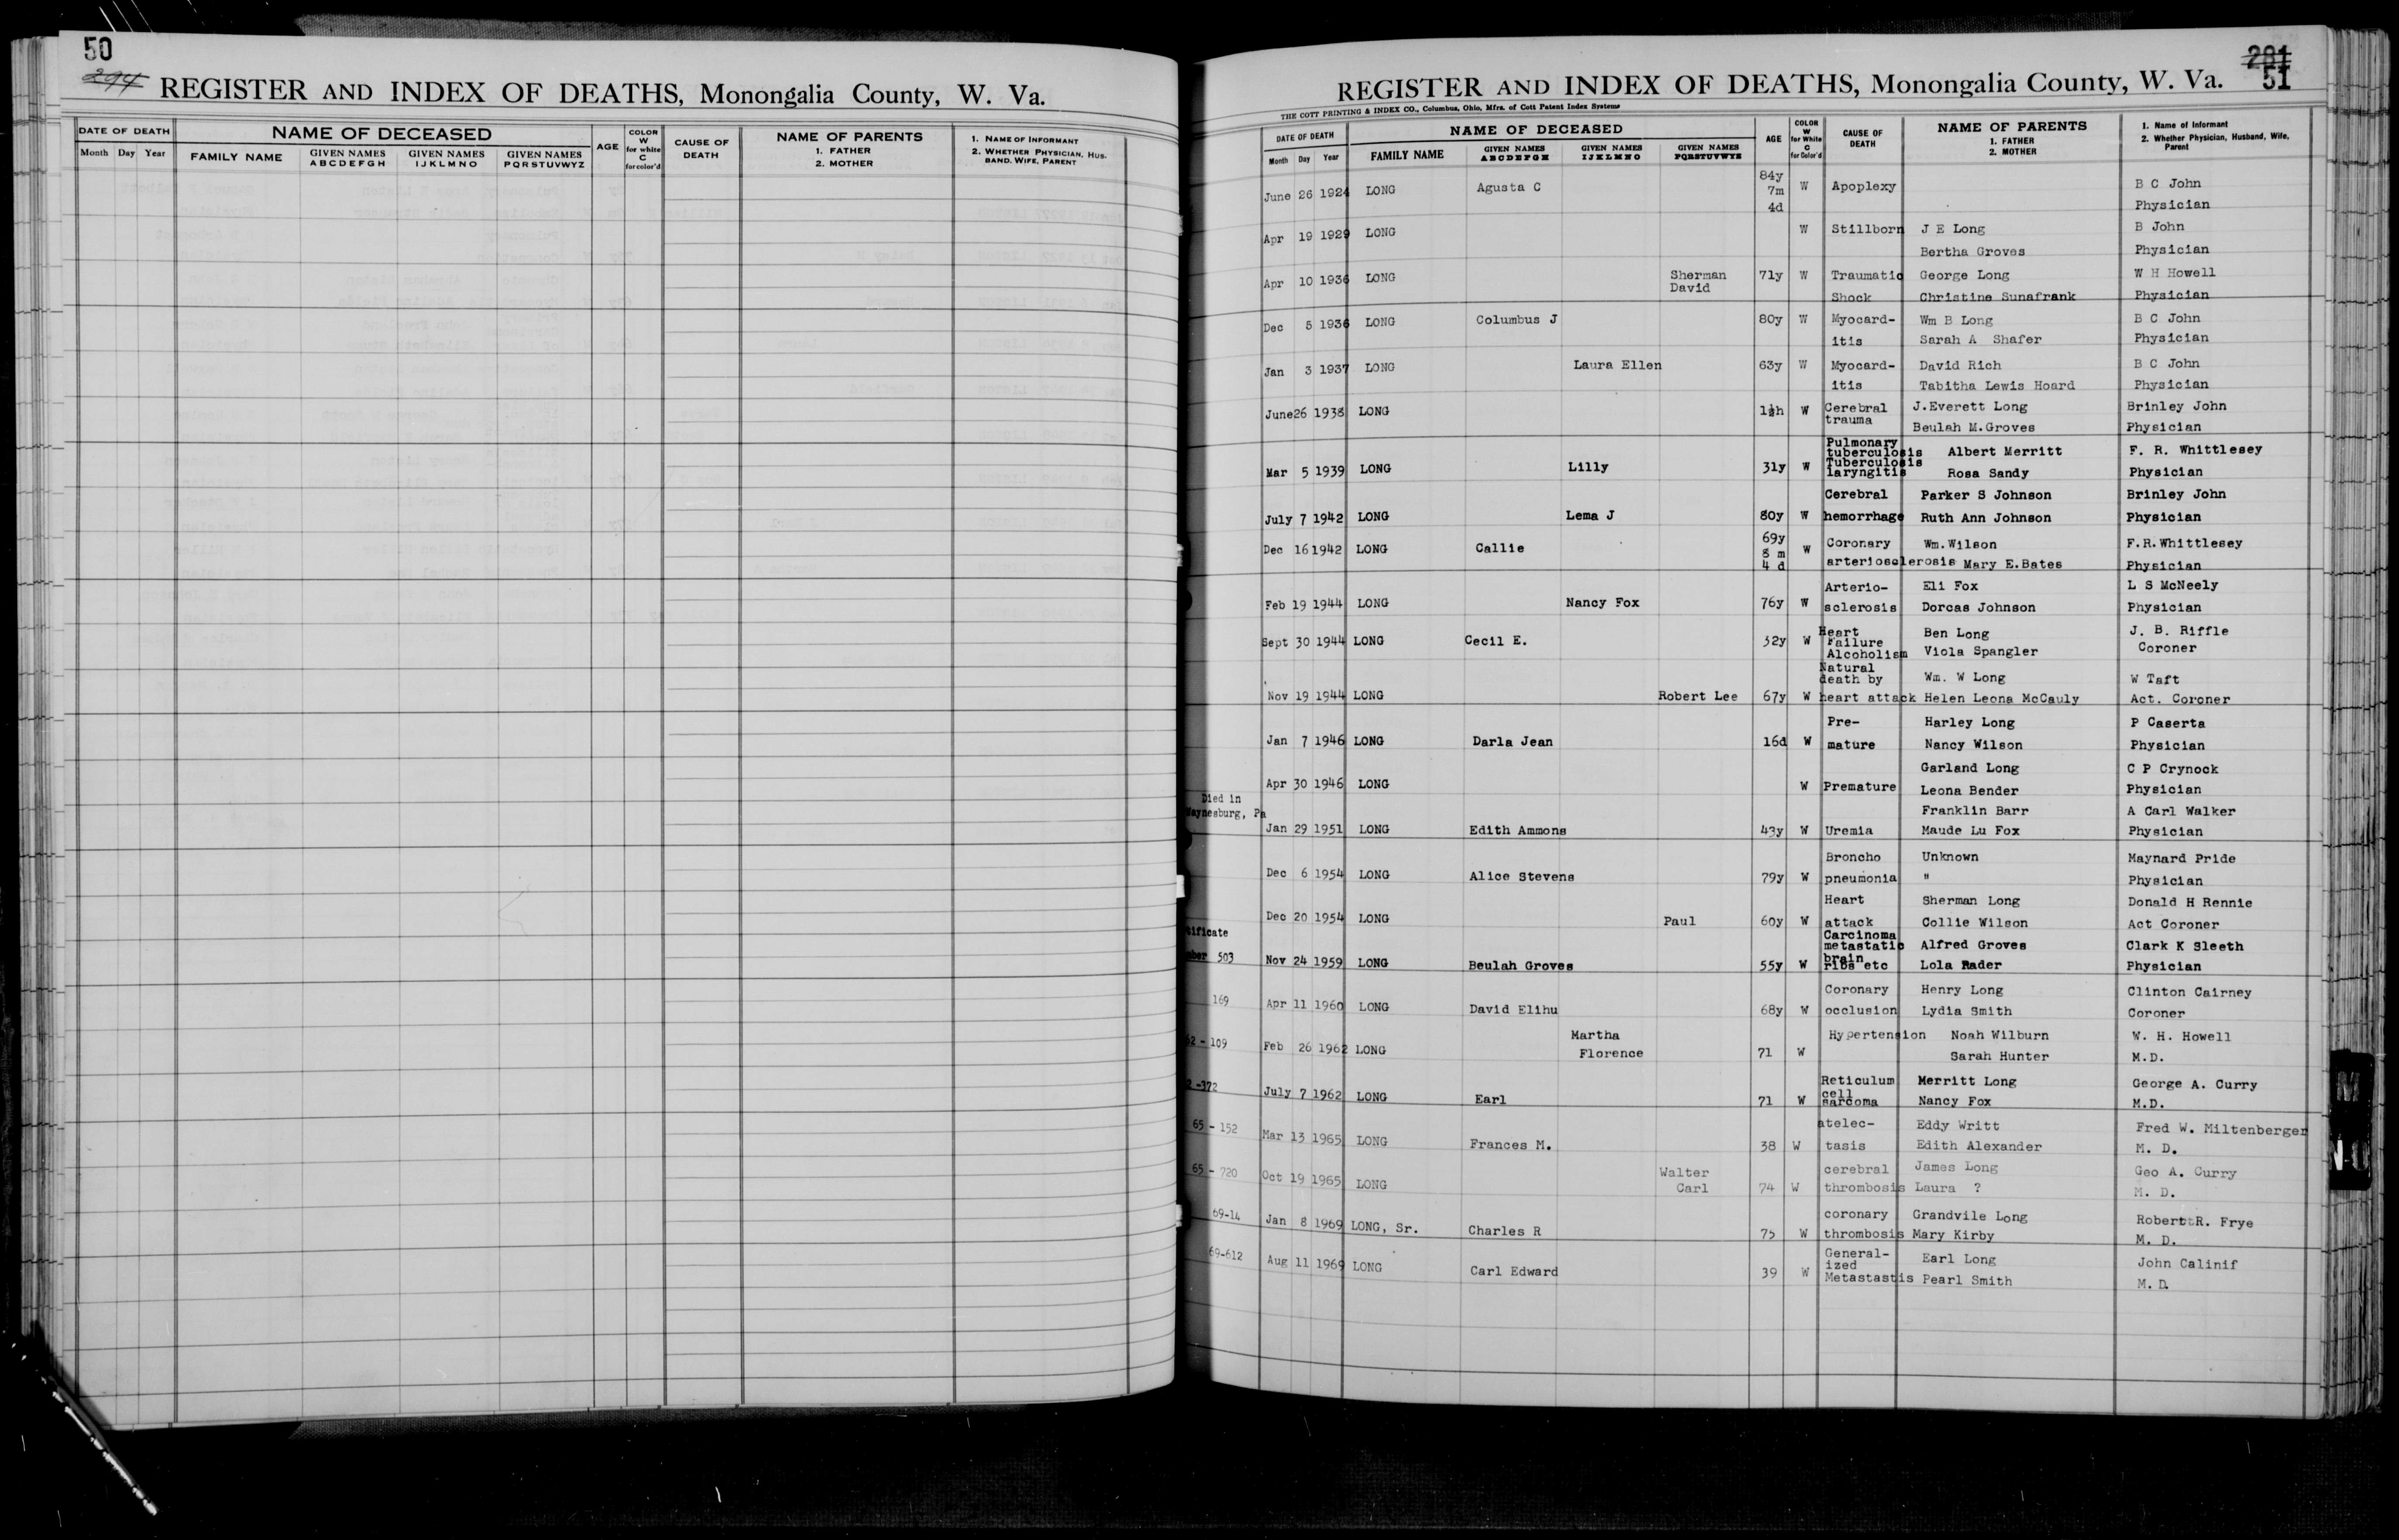 50
294
REGISTER AND INDEX OF DEATHS, Monongalia County, W. Va.
DATE OF DEATH NAME OF DECEASED AGE COLOR W for white C for color'd CAUSE OF DEATH NAME OF PARENTS 1. FATHER 2. MOTHER 1. NAME OF INFORMANT 2. WHETHER PHYSICIAN, HUS-BAND, WIFE, PARENT
Month Day Year FAMILY NAME GIVEN NAMES A B C D E F G H GIVEN NAMES I J K L M N O GIVEN NAMES P Q R S T U V W Y Z
291
51
REGISTER AND INDEX OF DEATHS, Monongalia County, W. Va.
THE COTT PRINTING & INDEX CO., Columbus, Ohio, Mfrs. of Cott Patent Index Systems
DATE OF DEATH NAME OF DECEASED AGE COLOR W for White C for Color'd CAUSE OF DEATH NAME OF PARENTS 1. FATHER 2. MOTHER 1. Name of Informant 2. Whether Physician, Husband, Wife, Parent
Month Day Year FAMILY NAME GIVEN NAMES A B C D E F G H GIVEN NAMES I J K L M N O GIVEN NAMES P Q R S T U V W Y Z
June 26 1924 LONG Agusta C 84y 7m 4d W Apoplexy B C John
Physician
Apr 19 1929 LONG W Stillborn J E Long B John
Bertha Groves Physician
Apr 10 1936 LONG Sherman David 71y W Traumatic George Long W H Howell
Shock Christine Sunafrank Physician
Dec 5 1936 LONG Columbus J 80y W Myocard- Wm B Long B C John
itis Sarah A Shafer Physician
Jan 3 1937 LONG Laura Ellen 63y W Myocard- David Rich B C John
itis Tabitha Lewis Hoard Physician
June26 1938 LONG 1½h W Cerebral J.Everett Long Brinley John
trauma Beulah M.Groves Physician
Pulmonary tuberculosis Albert Merritt F. R. Whittlesey
Mar 5 1939 LONG Lilly 31y W Tuberculosis laryngitis Rosa Sandy Physician
Cerebral Parker S Johnson Brinley John
July 7 1942 LONG Lema J 80y W hemorrhage Ruth Ann Johnson Physician
Dec 16 1942 LONG Callie 69y 8 m 4 d W Coronary Wm.Wilson F.R.Whittlesey
arteriosclerosis Mary E.Bates Physician
Arterio- Eli Fox L S McNeely
Feb 19 1944 LONG Nancy Fox 76y W sclerosis Dorcas Johnson Physician
Sept 30 1944 LONG Cecil E. 32y W Heart Failure Ben Long J. B. Riffle
Alcoholism Viola Spangler Coroner
Natural death by Wm. W Long W Taft
Nov 19 1944 LONG Robert Lee 67y W heart attack Helen Leona McCauly Act. Coroner
Pre- Harley Long P Caserta
Jan 7 1946 LONG Darla Jean 16d W mature Nancy Wilson Physician
Garland Long C P Crynock
Apr 30 1946 LONG W Premature Leona Bender Physician
Died in Waynesburg, Pa Franklin Barr A Carl Walker
Jan 29 1951 LONG Edith Ammons 43y W Uremia Maude Lu Fox Physician
Broncho Unknown Maynard Pride
Dec 6 1954 LONG Alice Stevens 79y W pneumonia " Physician
Heart Sherman Long Donald H Rennie
Dec 20 1954 LONG Paul 60y W attack Collie Wilson Act Coroner
tificate Carcinoma metastatic Alfred Groves Clark K Sleeth
mber 503 Nov 24 1959 LONG Beulah Groves 55y W brain ribs etc Lola Rader Physician
Coronary Henry Long Clinton Cairney
169 Apr 11 1960 LONG David Elihu 68y W occlusion Lydia Smith Coroner
Martha Hypertension Noah Wilburn W. H. Howell
62 - 109 Feb 26 1962 LONG Florence 71 W Sarah Hunter M.D.
Reticulum Merritt Long George A. Curry
2 -372 July 7 1962 LONG Earl 71 W cell sarcoma Nancy Fox M.D.
65 - 152 atelec- Eddy Writt Fred W. Miltenberger
Mar 13 1965 LONG Frances M. 38 W tasis Edith Alexander M. D.
65 - 720 Walter cerebral James Long Geo A. Curry
Oct 19 1965 LONG Carl 74 W thrombosis Laura ? M. D.
69-14 coronary Grandvile Long RoberttR. Frye
Jan 8 1969 LONG, Sr. Charles R 75 W thrombosis Mary Kirby M. D.
69-612 General- ized Earl Long John Calinif
Aug 11 1969 LONG Carl Edward 39 W Metastastis Pearl Smith M. D.
M
N-O